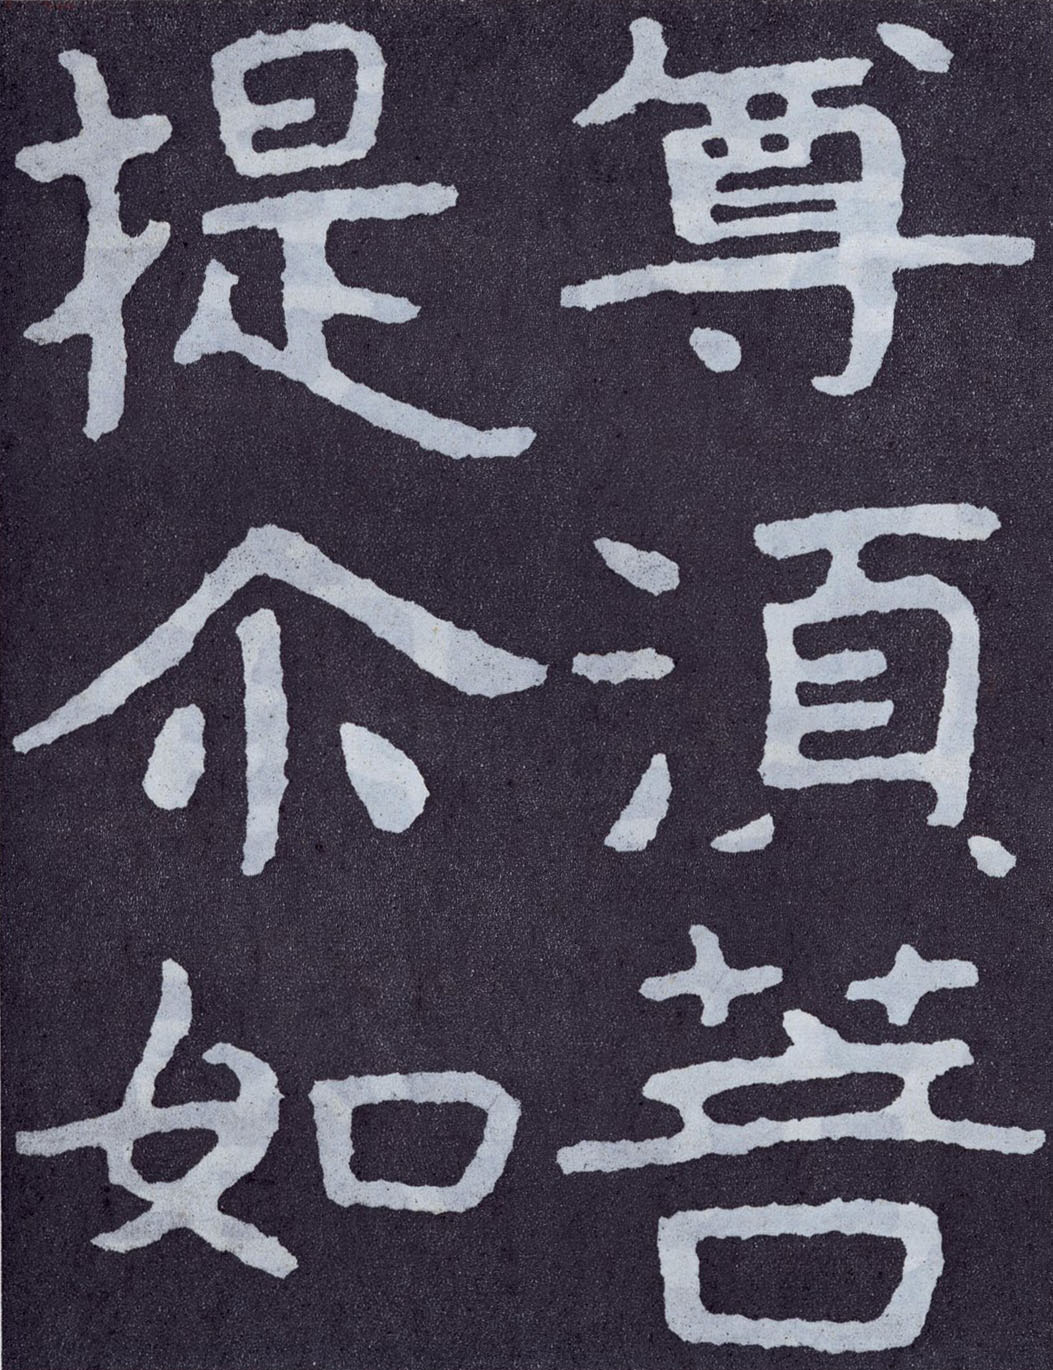 尊湏菩
提尒如